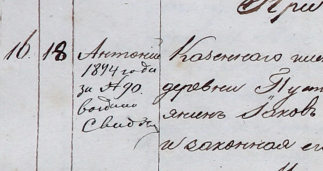 При
16. 18 Антоній Казеннаго име
1894 года деревни Пут
за № 90. янинъ Яков
выдано и законная ег
Свидѣ